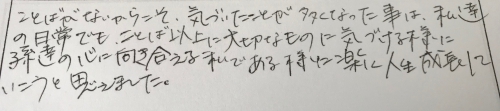 ことばがないからこそ、気づいたことが多くなった事は、私達
の日常でも、ことば以上に大切なものに気づける様に
孫達の心に向き合える私である様に楽しく人生成長して
いこうと思えました。